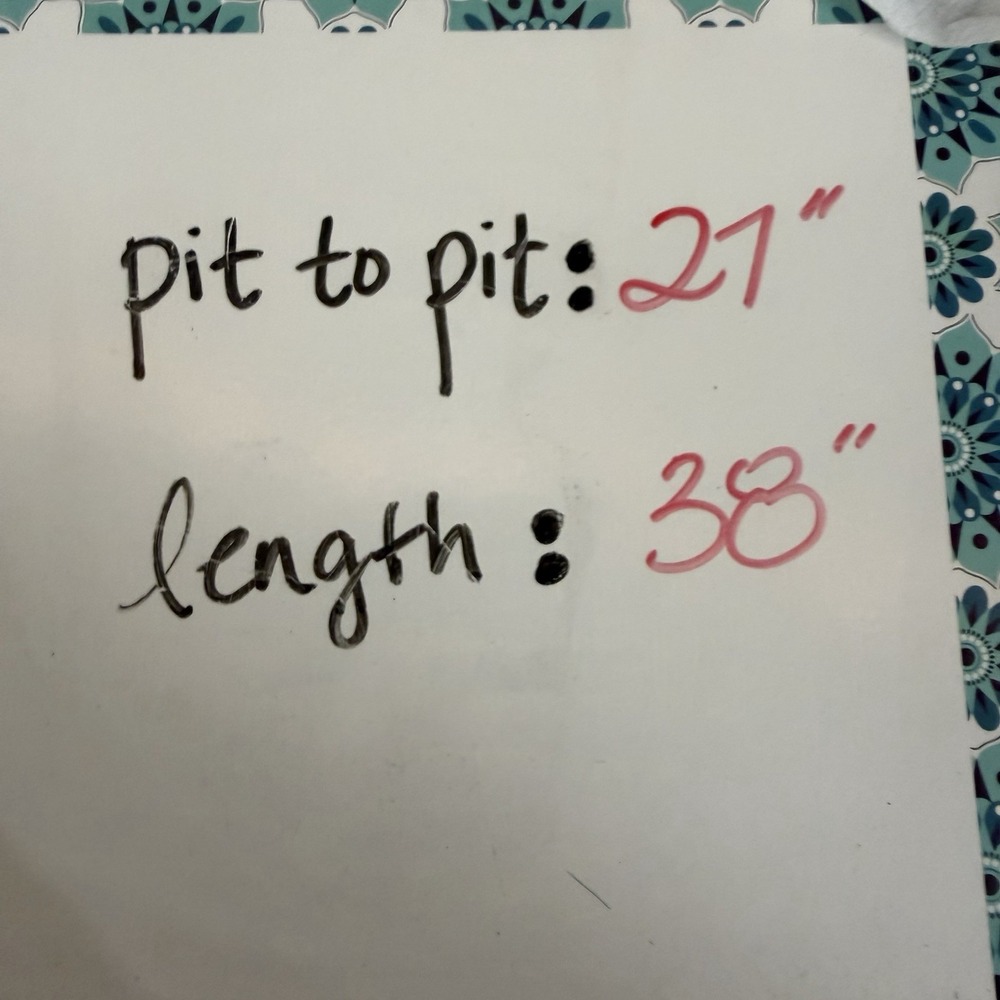 pit to pit: 21"
length: 38"